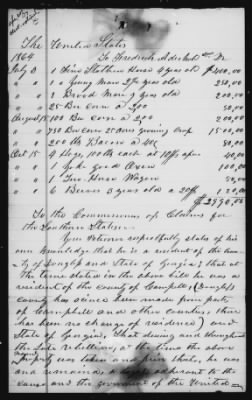 The United States
1864 To Frederick A Dr
July " 1 Fine Stallion Horse 4 years old $400.00
" " 1 Young Mare 2½ years old 250.00
" " 2 Brood Mares years old 200.00
" " 25 Bu corn a 2.00 50.00
August 15 100 Bu corn a 2.00 200.00
" " 750 Bu corn 25 acres growing crop 1500.00
" " 200 lbs Bacon a 40¢ 80.00
Oct 15 4 Hogs, 100 lbs each at 10¢ 40.00
" " 1 yoke good Oxen 100.00
" " 1 Two Horse Wagon 50.00
" " 6 Beeves 3 years old a 20 120.00
$2990.00
To the Commissioners of Claims for
the Southern States.
Your petitioner respectfully states of his
own knowledge that he is a resident of the coun-
ty of Douglass and State of Georgia; that at
the time dated in the above bill he was a
resident of the county of Campbell, (Douglass
county has since been made from parts
of Campbell and other Counties, there
has been no change of residence) and
State of Georgia, That during and throughout
the late rebellion, at the time the above
property was taken and from thence, he was
and remained, a adherent to the
cause and the government of the United